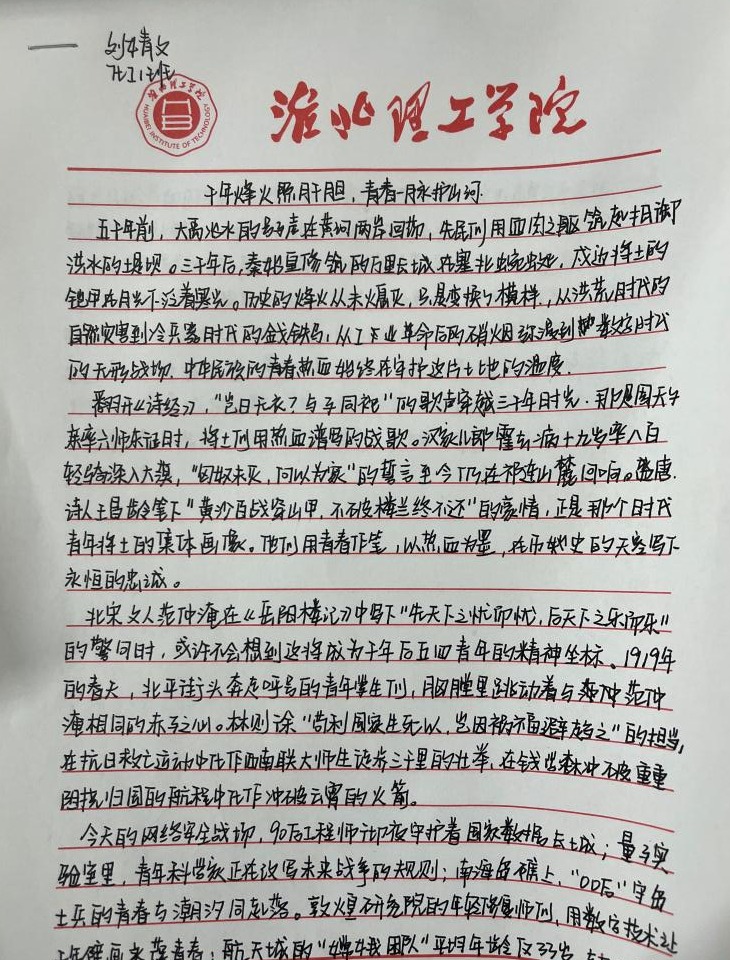 刘倩文
化工2班
淮北理工学院
HUAIBEI INSTITUTE OF TECHNOLOGY
千年烽火照肝胆，青春一脉护山河
五千年前，大禹治水的号子声在黄河两岸回荡，先民们用血肉之躯筑起抵御
洪水的堤坝。三千年后，秦始皇修筑的万里长城在塞北蜿蜒，戍边将士的
铠甲在月光下泛着寒光。历史的烽火从未熄灭，只是变换了模样，从洪荒时代的
自然灾害到冷兵器时代的金戈铁马，从工业革命后的硝烟弥漫到数字时代
的无形战场，中华民族的青春热血始终在守护这片土地的温度。
翻开《诗经》，"岂曰无衣？与子同袍"的歌声穿越三千年时光，那是周天子
亲率六师东征时，将士们用热血谱写的战歌。汉家儿郎霍去病十九岁率八百
轻骑深入大漠，"匈奴未灭，何以为家"的誓言至今仍在祁连山麓回响。盛唐
诗人王昌龄笔下"黄沙百战穿山甲，不破楼兰终不还"的豪情，正是那个时代
青年将士的集体画像。他们用青春作笔，以热血为墨，在历史的天空写下
永恒的忠诚。
北宋文人范仲淹在《岳阳楼记》中写下"先天下之忧而忧，后天下之乐而乐"
的警句时，或许不会想到这将成为千年后五四青年的精神坐标。1919年
的春天，北平街头奔走呼号的青年学生们，胸膛里跳动着与范仲
淹相同的赤子之心。林则徐"苟利国家生死以，岂因祸福避趋之"的担当，
在抗日救亡运动中化作西南联大师生徒步三千里的壮举，在钱学森冲破重重
阻挠归国的航程中化作冲破云霄的火箭。
今天的网络安全战场，90后工程师日夜守护着国家数据长城；量子实
验室里，青年科学家正在改写未来战争的规则；南海岛礁上，"00后"守岛
士兵的青春与潮汐同起落。敦煌研究院的年轻修复师们，用数字技术让
壁画永葆青春；航天城的"嫦娥团队"平均年龄仅33岁